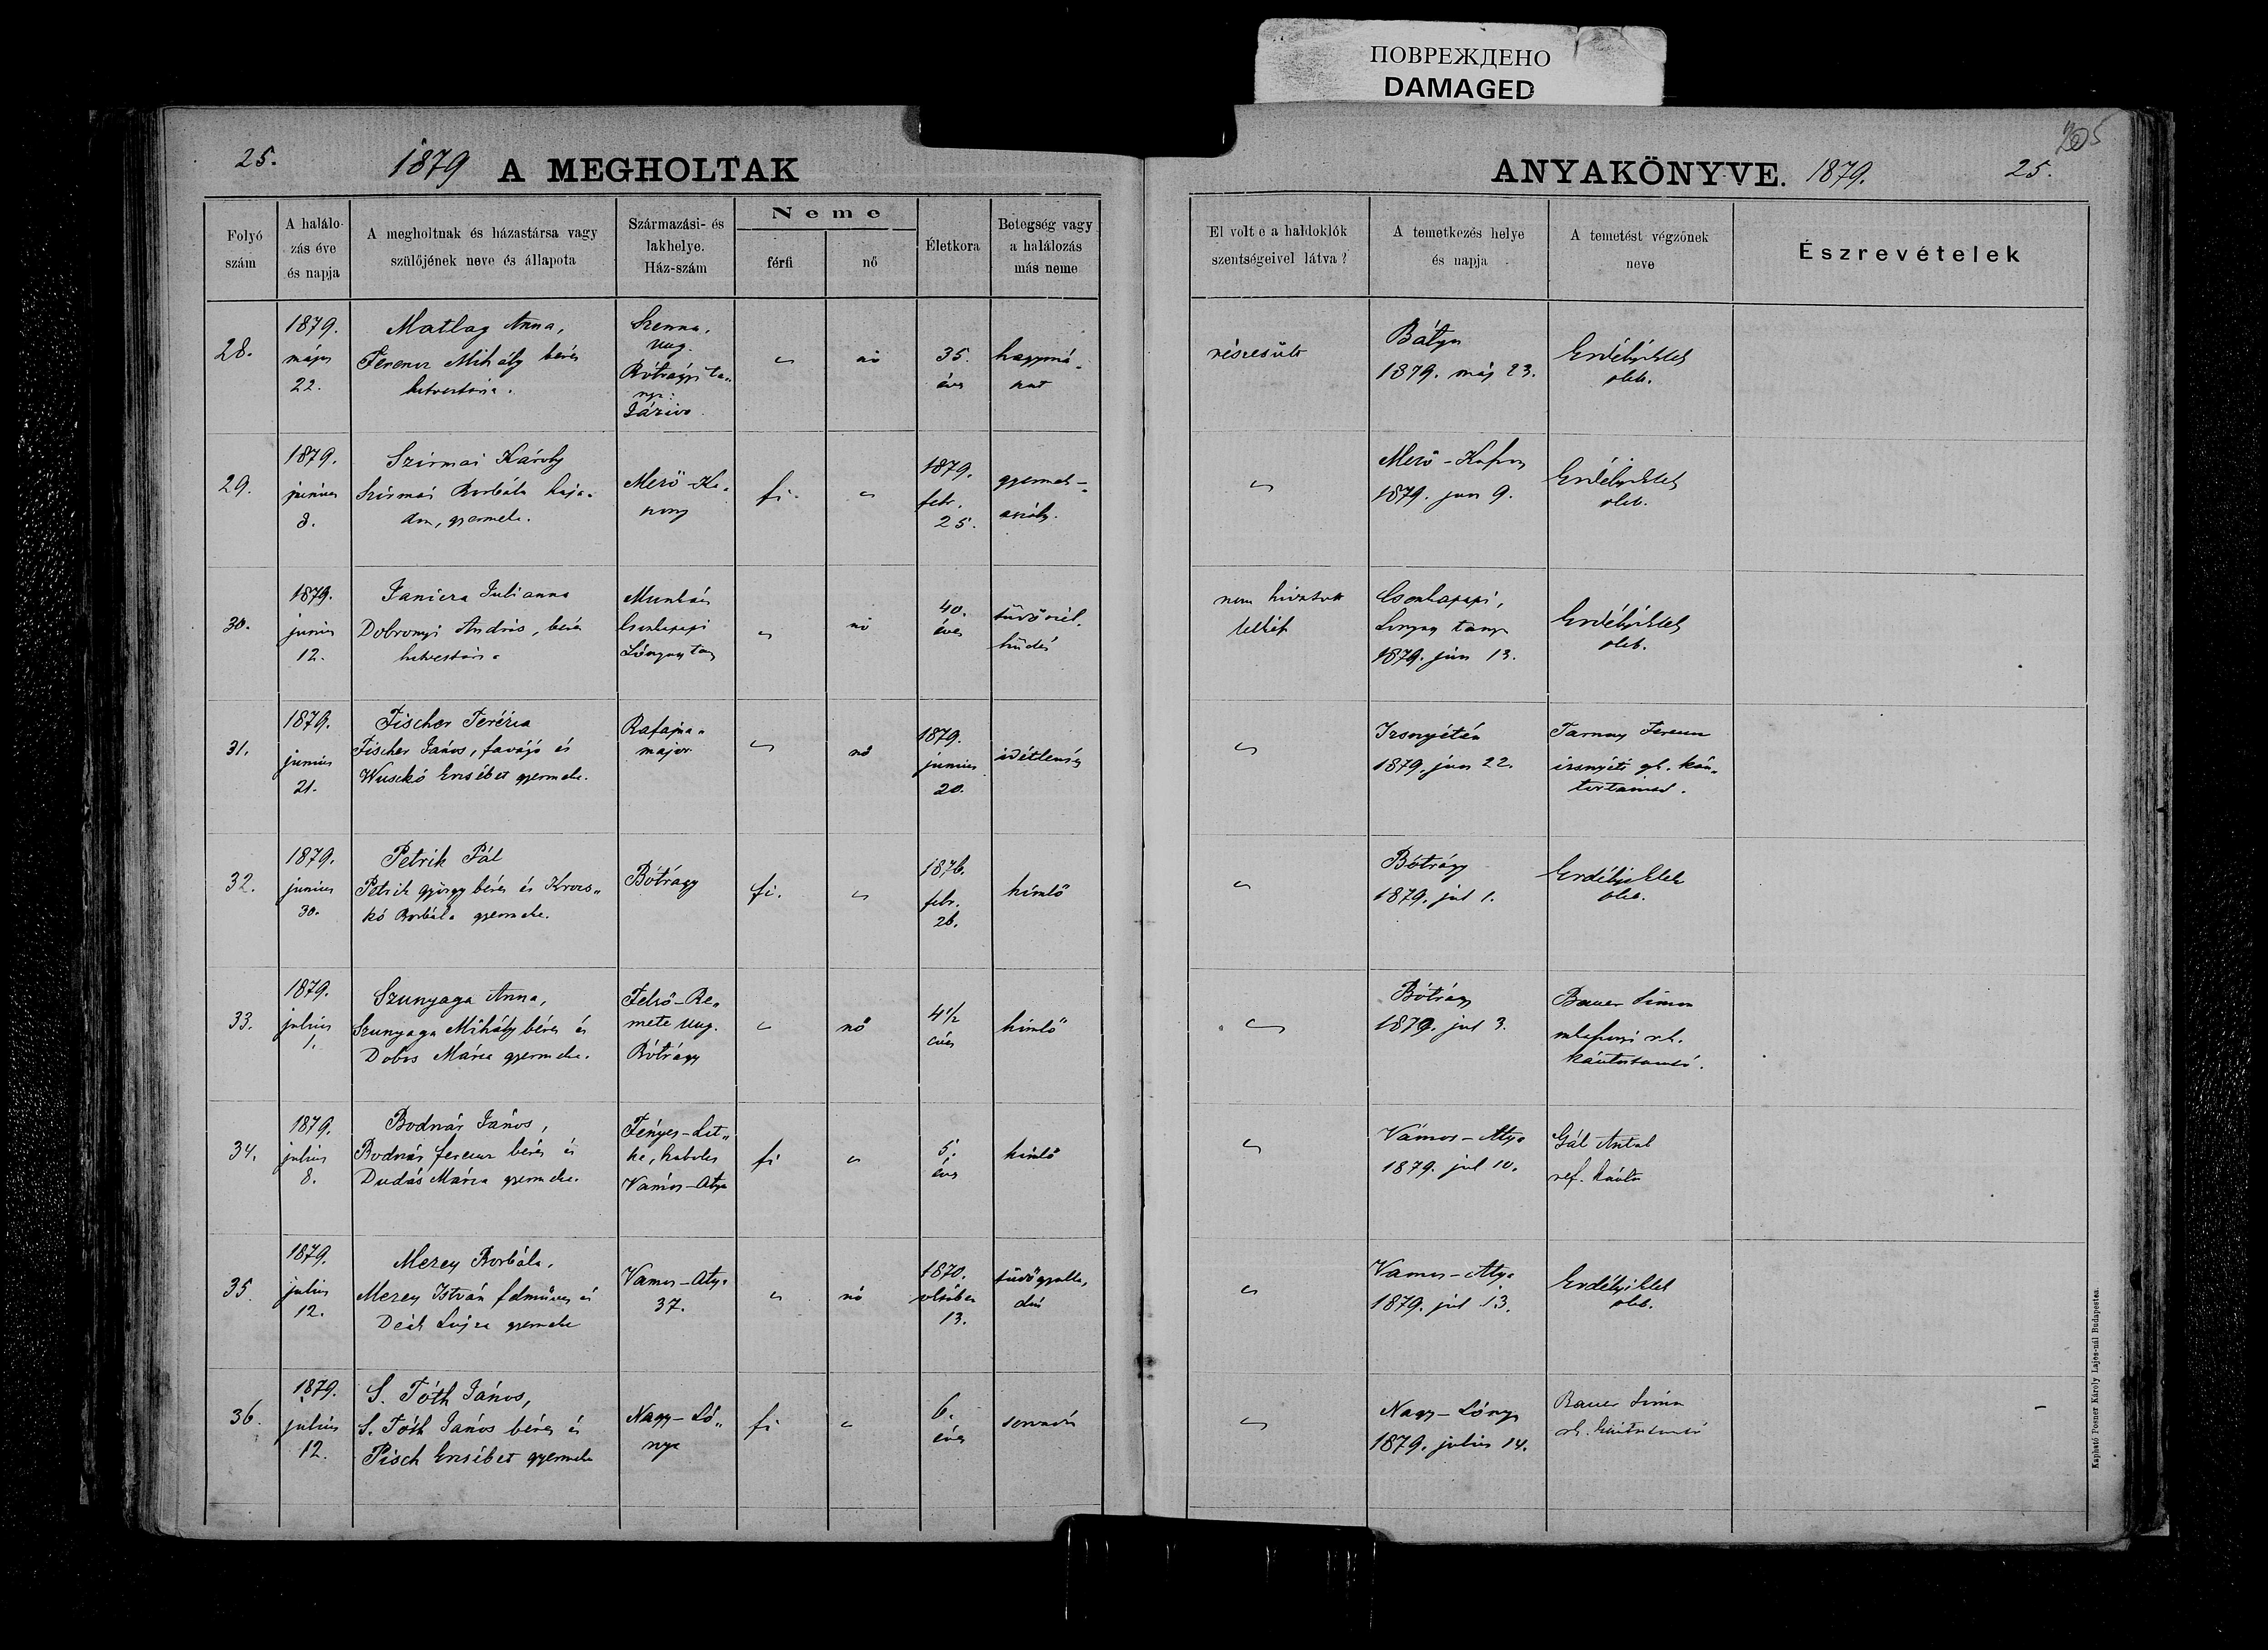 ПОВРЕЖДЕНО
DAMAGED
25.
1879 A MEGHOLTAK
ANYAKÖNYVE. 1879.
25.
Folyó
szám
A halálo-
zás éve
és napja
A megholtnak és házastársa vagy
szülőjének neve és állapota
Származási- és
lakhelye.
Ház-szám
Neme
férfi
nő
Életkora
Betegség vagy
a halálozás
más neme
El volt e a haldoklók
szentségeivel látva?
A temetkezés helye
és napja
A temetést végzőnek
neve
Észrevételek
28.
1879.
május
22.
Matlag Anna,
Ferencz Mihály béres
hitvestársa.
Szenna.
Ung.
Bótrágyi ta„
nya:
nő
35.
éves
hagymá„
részesült
Bátyu
1879. máj 23.
Erdélyi Elek
pleb.
29.
1879.
junius
8.
Szirmai Károly
Szirmai Borbála haja„
don, gyermeke.
Mező-Ka„
szony
fi.
1879.
febr.
25.
gyermek-
aszály.
Mező-Kaszony
1879. jun 9.
Erdélyi Elek
pleb.
30.
1879.
junius
12.
Janicza Julianna
Dobronyi András, béres
hitvestársa
Munkács
Csonkapapi
Lónyay tan
nő
40.
éves
tüdővél„
hüdés
nem hivattak
lelkészt
Csonkapapi,
Lonyay tanya
1879. jún 13.
Erdélyi Elek
pleb.
31.
1879.
junius
21.
Fischer Terézia
Fischer János, favágó és
Wuskó Erzsébet gyermeke.
Rafajna„
major
nő
1879.
junius
20.
idétlenség
Izsnyétén
1879. jun 22.
Tarnay Ferencz
izsnyéti gk. kán„
tortanitó.
32.
1879.
junius
30.
Petrik Pál
Petrik györgy béres és Krocs„
kó Borbála gyermeke.
Bótrágy
fi.
1876.
febr.
26.
himlő
Bótrágy
1879. jul 1.
Erdélyi Elek
pleb.
33.
1879.
julius
1.
Szunyaga Anna,
Szunyaga Mihály béres és
Dobos Mária gyermeke.
Felső-Re„
mete Ung.
Bótrágy
nő
4 1/2
éves
himlő
Bótrágy
1879. jul 3.
Bauer Simon
mkaszonyi rk.
kántortanitó.
34.
1879.
julius
8.
Bodnár János,
Bodnár ferencz béres és
Dudás Mária gyermeke.
Fényes-Lit„
ke, Szabolcs
Vámos-Atya
fi
5.
éves
himlő
Vámos-Atya
1879. jul 10.
Gál Antal
ref. kántor
35.
1879.
julius
12.
Mezey Borbála,
Mezey István földmüves és
Deák Lujza gyermeke
Vamos-Atya
37.
nő
1870.
október
13.
tüdőgyulla„
dás
Vamos-Atya
1879. júl 13.
Erdélyi Elek
pleb.
36.
1879.
julius
12.
S. Tóth János,
S. Tóth János béres és
Pisch Erzsébet gyermeke
Nagy-Ló„
nya
fi
6.
éves
sorvadás
Nagy-Lónya
1879. julius 14.
Bauer Simon
rk. kántortanitó
Kapható Posner Károly Lajos-nál Budapesten.